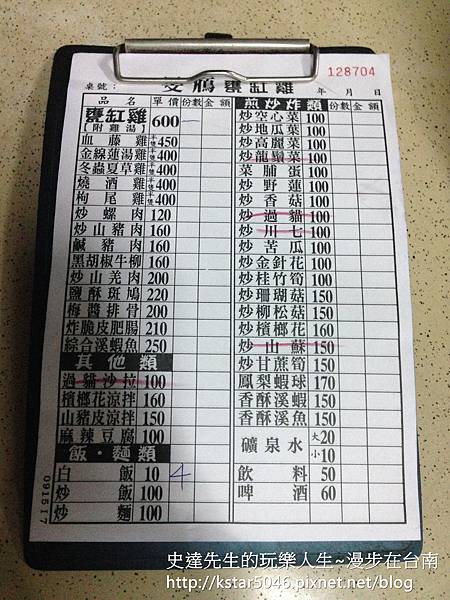 128704
桌號： 雙鵰甕缸雞 年 月 日
品名 單價 份數 金額
甕缸雞【附雞湯】 600 一
血藤雞 半隻450
金線蓮湯雞 半隻400
冬蟲夏草雞 半隻400
燒酒雞 半隻400
枸尾雞 半隻400
炒螺肉 120
炒山豬肉 160
鹹豬肉 160
黑胡椒牛柳 160
炒山羌肉 200
鹽酥斑鳩 220
梅醬排骨 200
炸脆皮肥腸 210
綜合溪蝦魚 250
其他類
過貓沙拉 100
檳榔花涼拌 160
山豬皮涼拌 150
麻辣豆腐 100
飯·麵類
白飯 10 4
炒飯 100
炒麵 100
煎炒炸類 份數 金額
炒空心菜 100
炒地瓜菜 100
炒高麗菜 100
炒龍鬚菜 100
菜脯蛋 100
炒野蓮 100
炒香菇 100
炒過貓 100
炒川七 100
炒苦瓜 100
炒金針花 100
炒桂竹筍 100
炒珊瑚菇 150
炒柳松菇 150
炒檳榔花 160
炒山蘇 150
炒甘蔗筍 150
鳳梨蝦球 170
香酥溪蝦 150
香酥溪魚 150
礦泉水 大20 小10
飲料 50
啤酒 60
091517
史達先生的玩樂人生~漫步在台南
http://kstar5046.pixnet.net/blog